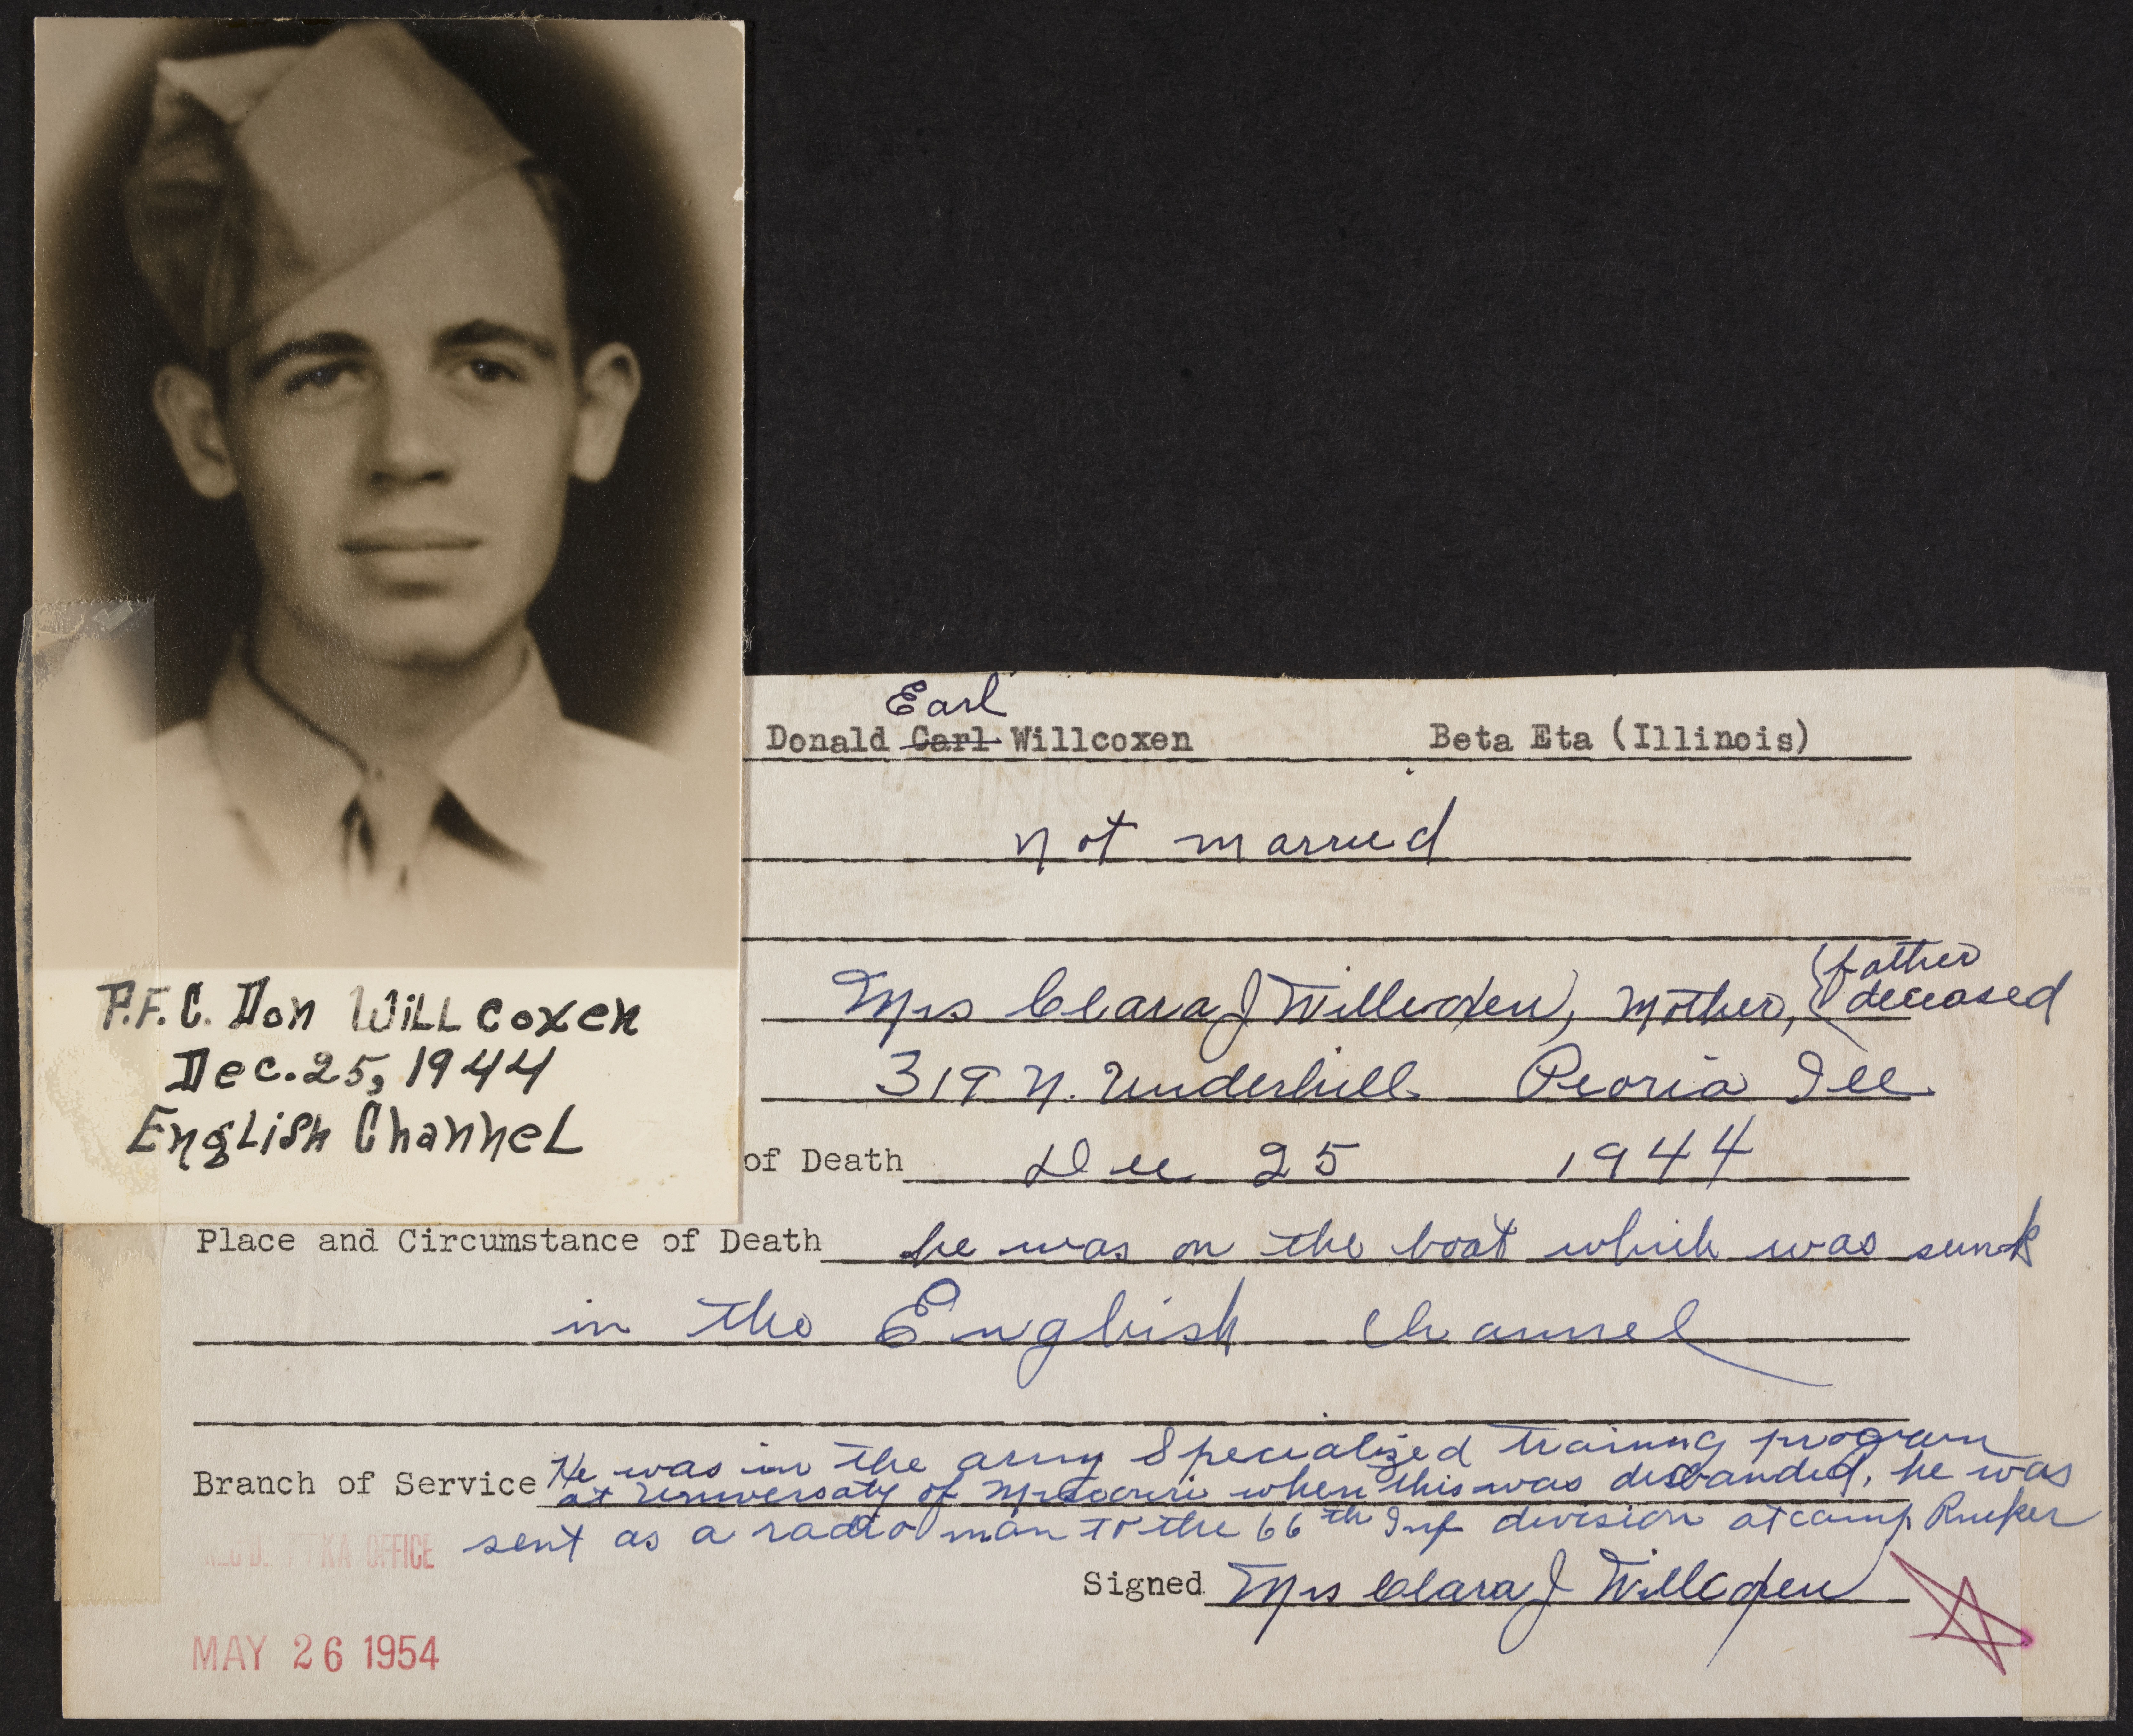 P.F.C. Don Willcoxen
Dec. 25, 1944
English Channel
Earl
Donald Carl Willcoxen Beta Eta (Illinois)
not married
Mrs Clara J Willcoxen, Mother, (father
deceased
319 N. Underhill Peoria Ill
of Death Dec 25 1944
Place and Circumstance of Death he was on the boat which was sunk
in the English Channel
Branch of Service He was in the army Specialized training program
at University of Missouri when this was disbanded, he was
sent as a radio man to the 66th Inf division at camp Rucker
REC'D. OFFICE
Signed Mrs Clara J Willcoxen
MAY 26 1954